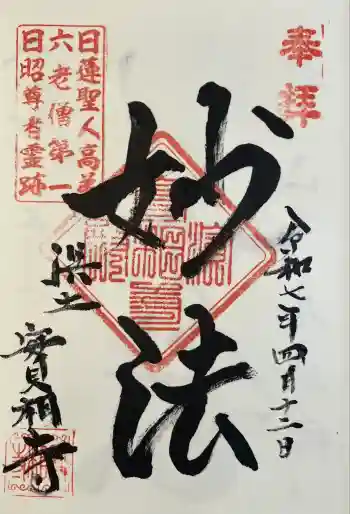 奉拝
令和七年四月十二日
妙法
日蓮聖人高弟
六老僧第一
日昭尊者霊跡
實相寺